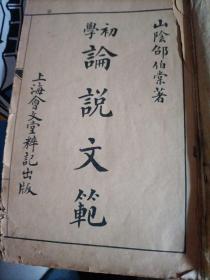 山陰邵伯棠著
初學
論說文範
上海會文堂粹記出版